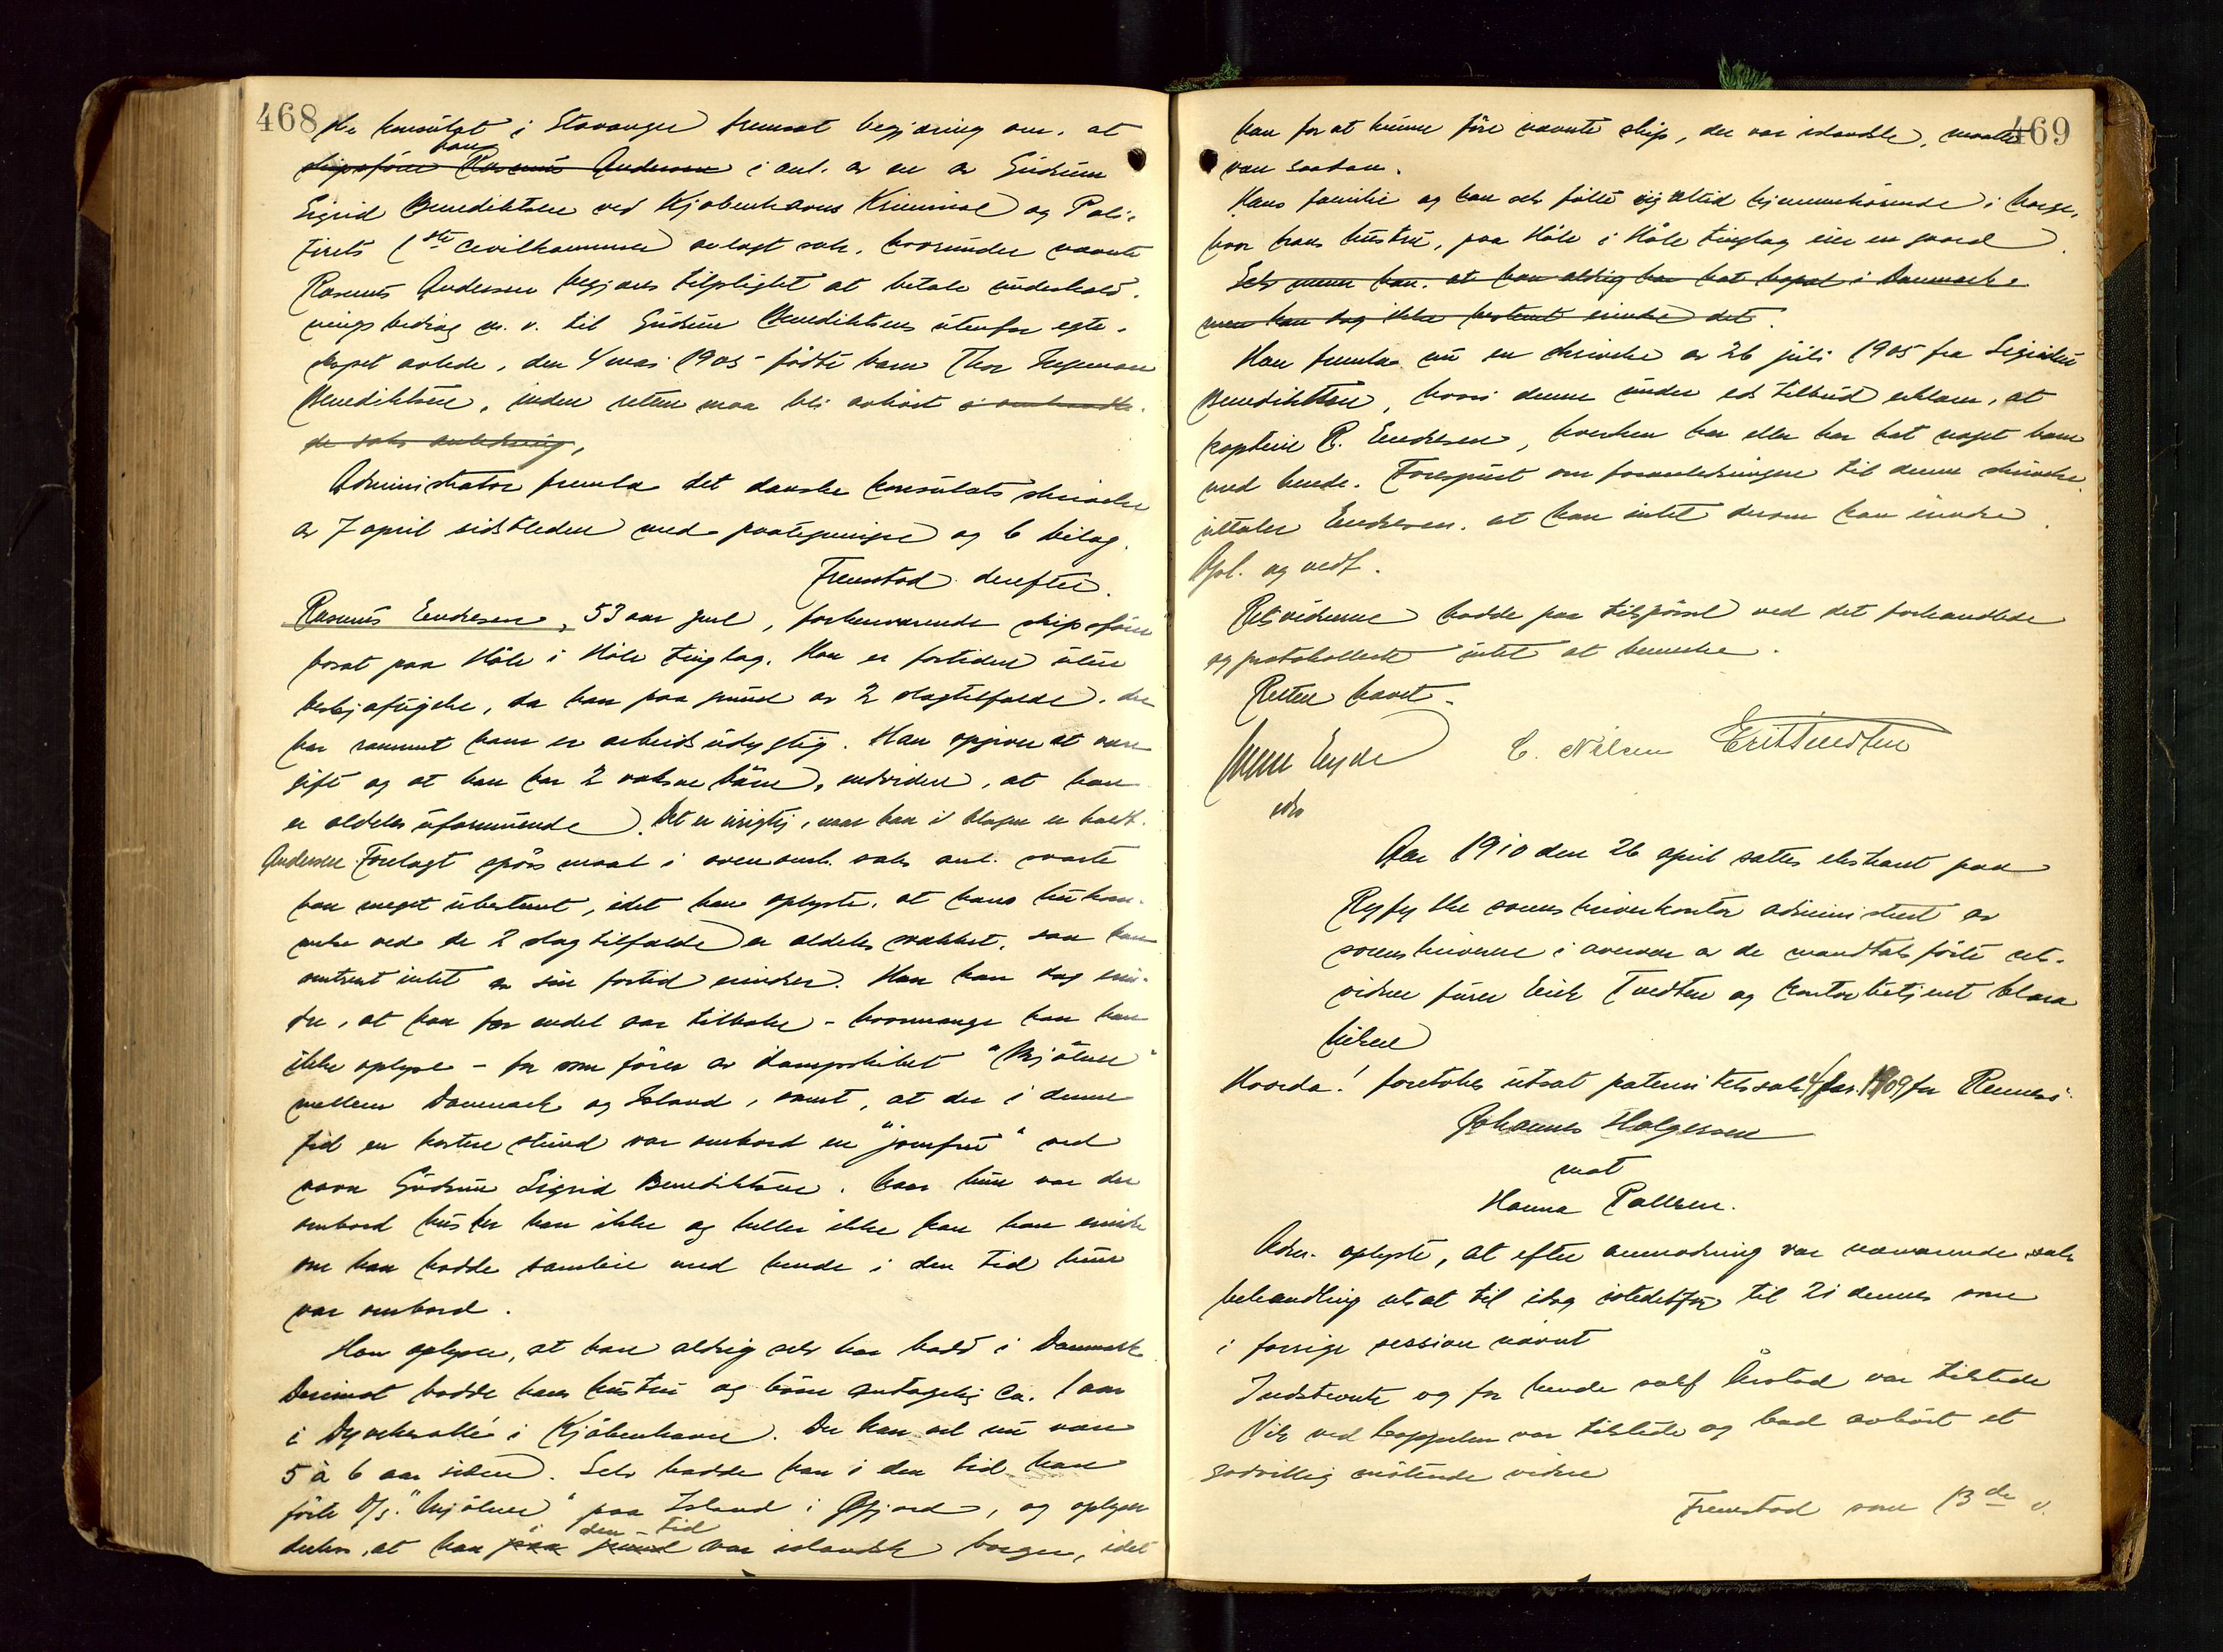 468
ske konsulat i Stavanger fremsat begjæring om, at
han
skipsfører Rasmus Andersen i anl. av en av Gudrun
Sigrid Benediktsen ved Kjøbenhavns Kriminal og Poli-
tirets 1ste civilkammer anlagt sak, hvorunder nævnte
Rasmus Andersen begjæres tilpligtet at betale underhold-
ningsbidrag m. v. til Gudrun Benediktsens utenfor egte-
skapet avlede, den 4 mai 1905 fødte barn Thor
Benediktsen, inden retten maa bli avhørt i omhandle-
de saks anledning,
Administrator fremla det danske konsulats skrivelse
av 7 april sidstleden med paategninger og 6 bilag.
Fremstod derefter.
Rasmus Endresen, 53 aar gml, forhenværende skipsfører
bosat paa Høle i Høle tinglag. Han er fortiden uten
beskjæftigelse, da han paa grund av 2 slagtilfælde, der
har rammet ham er arbeidsudygtig. Han opgiver at være
gift og at han har 2 voksne børn, endvidere, at han
er aldeles uformuende. Det er urigtig, naar han i klagen er kaldt
Andersen. Forelagt spørsmaal i ovenomh. saks anl. svarte
han meget ubestemt, idet han oplyste, at hans hukom-
melse ved de 2 slagtilfælde er aldeles svækket, saa han
omtrent intet av sin fortid erindrer. Han kan dog erin-
dre, at han for endel aar tilbake - hvormange kan han
ikke oplyse - for som fører av dampskibet "Mjølner"
mellem Danmark og Island, samt, at der i denne
tid en kortere stund var ombord en "jomfru" ved
navn Gudrun Sigrid Benediktsen. Naar hun var der
ombord husker han ikke og heller ikke kan han erindre
om han hadde samleie med hende i den tid hun
var ombord.
Han oplyser, at han aldrig selv har bodd i Danmark
Derimot bodde hans hustru og børn antagelig ca. 1 aar
i Dyvekesallé i Kjøbenhavn. Det kan vel nu være
5 à 6 aar siden. Selv hadde han i den tid han
førte D/S. "Mjølner" paa Island i Øfjord, og oplyser
i den tid
derhos, at han paa grund var islandsk borger, idet
469
han for at kunne føre nævnte skip, der var islandsk, maatte
være saadan.
Hans familie og han selv følte sig altid hjemmehørende i Norge,
hvor hans hustru, paa Høle i Høle tinglag eier en gaard
Selv mener han, at han aldrig har hat bopæl i Danmark,
men kan dog ikke bestemt erindre det.
Han fremla nu en skrivelse av 26 juli 1905 fra
Benediktsen, hvori denne under eds tilbud erklærer, at
kaptein R. Endresen, hverken har eller har hat noget barn
med hende. Forespurt om foranledningen til denne skrivelse
uttaler Endresen, at han intet derom kan erindre
Opl. og vedt.
Retsvidnerne hadde paa tilspørsel ved det forhandlede
og protokollerte intet at bemerke.
Retten hævet.
C. Nilsen Erik Tvedten
Aar 1910 den 26 april sattes ekstraret paa
Ryfylke sorenskriverkontor administrert av
sorenskriveren i overvær av de mandtalsførte ret-
vidner fhver. Erik Tvedten og kontorbetjent Clara
Nilsen
Hvorda! foretokes utsat paternitetssak 4/1909 for Rennesø:
Johannes Holgersen
mot
Hanna Pallesen.
Adm. oplyste, at efter anmodning var nærværende saks
behandling utsat til idag istedetfor til 21 dennes som
i forrige session nævnt
Indstevnte og for hende sakf Aarstad var tilstede
Vik ved Coppelen var tilstede og bad avhørt et
godvillig møtende vidne
Fremstod som 13de v.